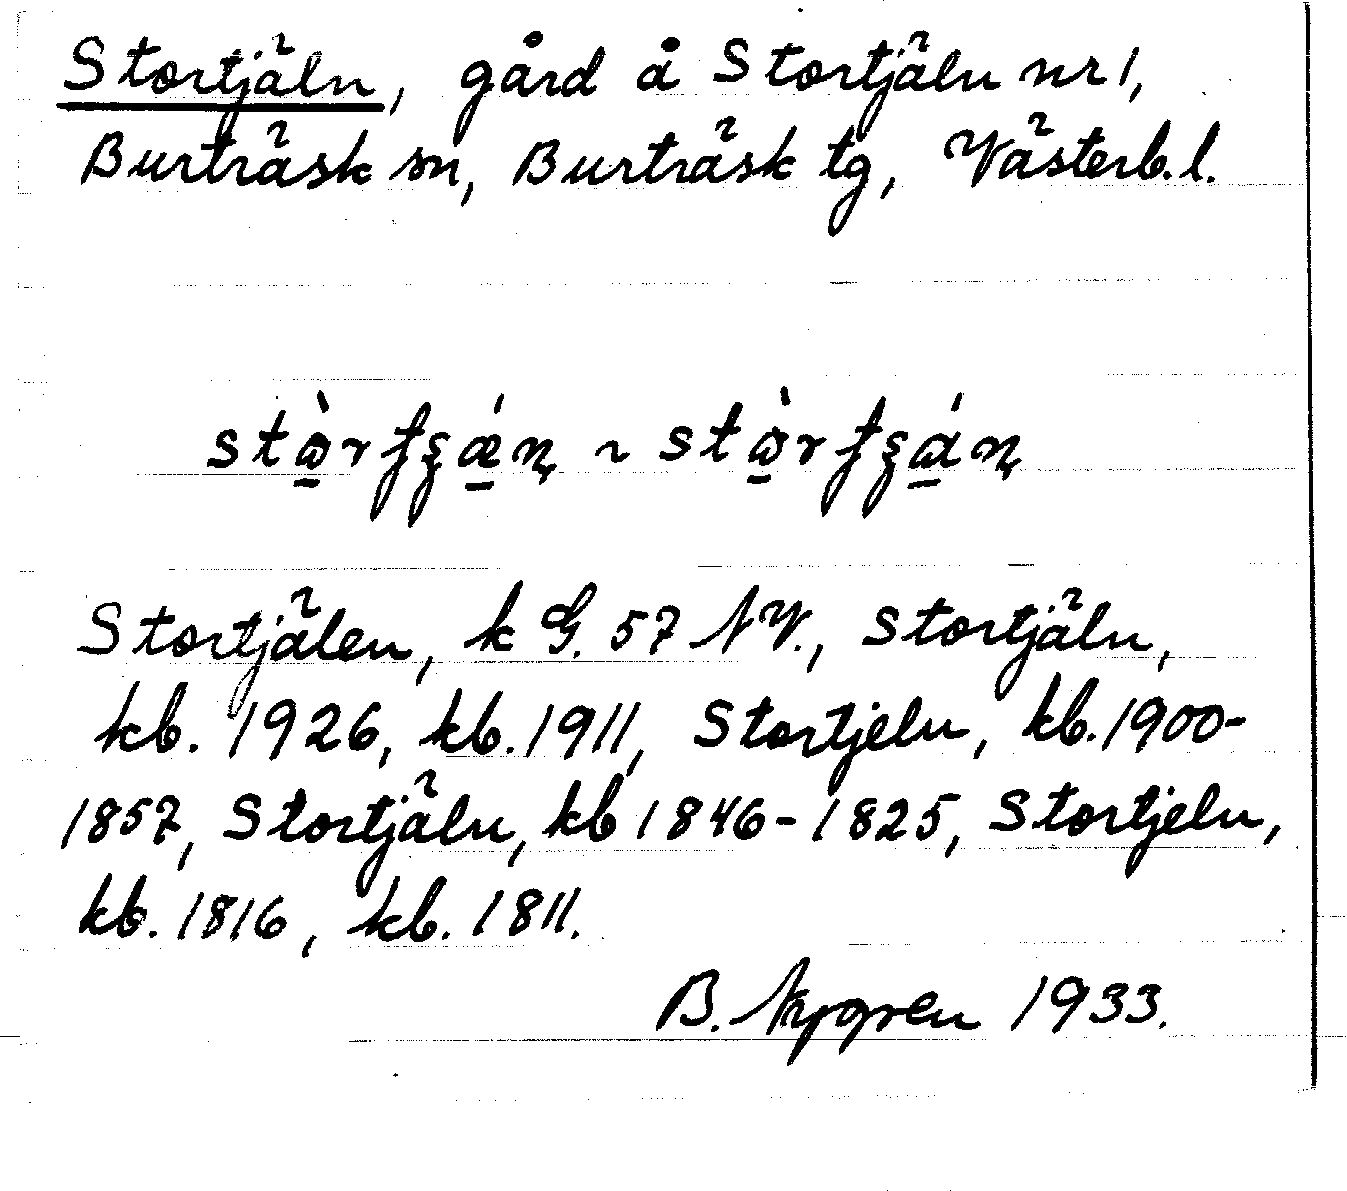 Stortjäln, gård å Stortjäln nr 1,
Burträsk sn, Burträsk tg, Västerb. l.
Stortjälen, k G. 57 NV., Stortjäln,
kb. 1926, kb. 1911, Stortjeln, kb. 1900-
1857, Stortjäln, kb 1846-1825, Stortjeln,
kb. 1816, kb. 1811.
B. Nygren 1933.